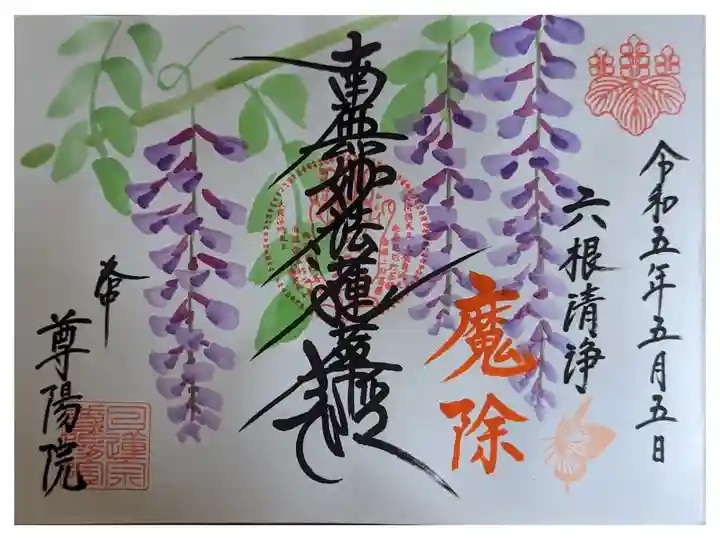 令和五年五月五日
六根清浄
魔除
南無妙法蓮華経
奉
尊陽院